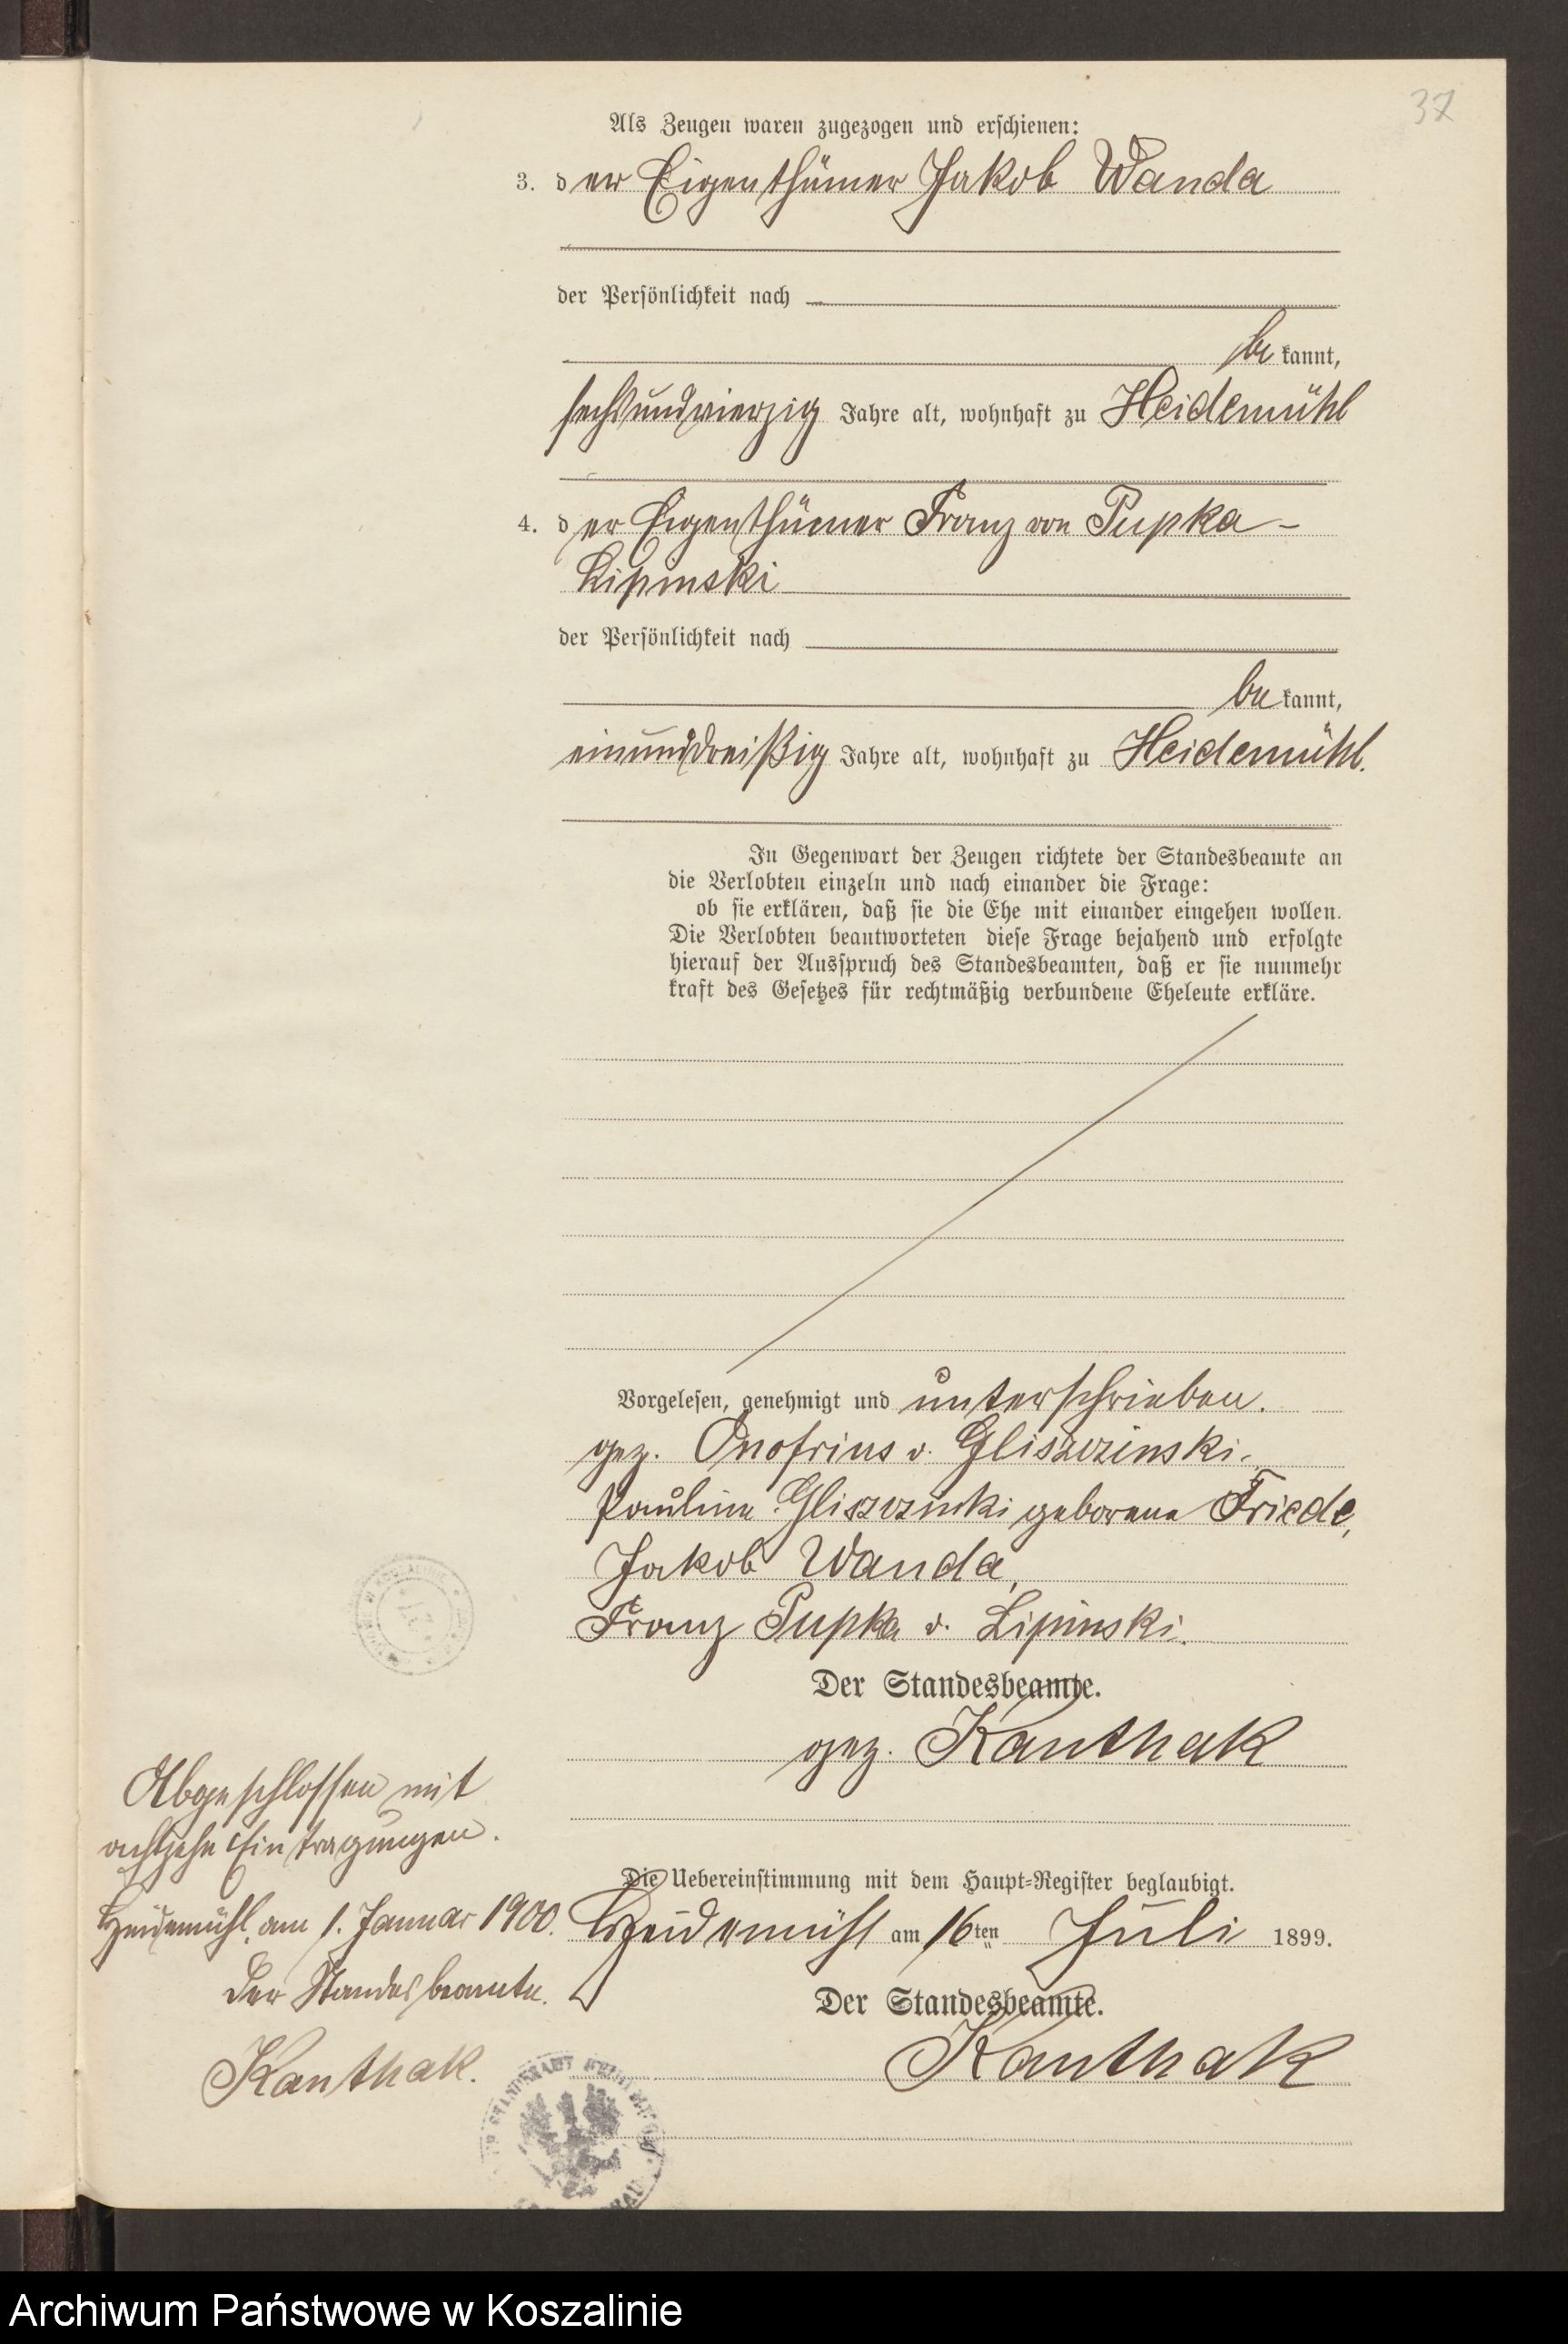 37
Als Zeugen waren zugezogen und erschienen:
3. der Eigenthümer Jakob Wanda
der Persönlichkeit nach
bekannt,
sechsundvierzig Jahre alt, wohnhaft zu Heidemühl
4. der Eigenthümer Franz von Pupka-
Lipinski
der Persönlichkeit nach
bekannt,
einunddreißig Jahre alt, wohnhaft zu Heidemühl.
In Gegenwart der Zeugen richtete der Standesbeamte an
die Verlobten einzeln und nach einander die Frage:
ob sie erklären, daß sie die Ehe mit einander eingehen wollen.
Die Verlobten beantworteten diese Frage bejahend und erfolgte
hierauf der Ausspruch des Standesbeamten, daß er sie nunmehr
kraft des Gesetzes für rechtmäßig verbundene Eheleute erkläre.
Vorgelesen, genehmigt und unterschrieben.
gez. Onofrius v. Gliszczinski.
Pauline Gliszczinski geborene Friede,
Jakob Wanda,
Franz Pupka v. Lipinski.
Der Standesbeamte.
gez. Kanthak
Die Uebereinstimmung mit dem Haupt-Register beglaubigt.
Heidemühl am 16ten Juli 1899.
Der Standesbeamte.
Kanthak
Abgeschlossen mit
achtzehn Eintragungen.
Heidemühl, am 1. Januar 1900.
Der Standesbeamte.
Kanthak.
Archiwum Państwowe w Koszalinie